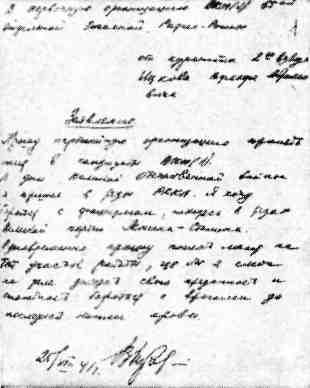 В первичную организацию ВКП(б) 55 ой
отдельной Запасной Радио-Роты
от курсанта 2 го взвода
Заявление
Прошу первичную организацию принять
меня в кандидаты ВКП(б).
В дни Великой Отечественной войны
я пришел в ряды РККА. Я хочу
бороться с фашизмом, находясь в рядах
великой партии Ленина - Сталина.
Одновременно прошу послать меня на
участок работы, где бы я смог
на деле доказать свою преданность и
бороться с врагами до
последней капли крови.
41 г.